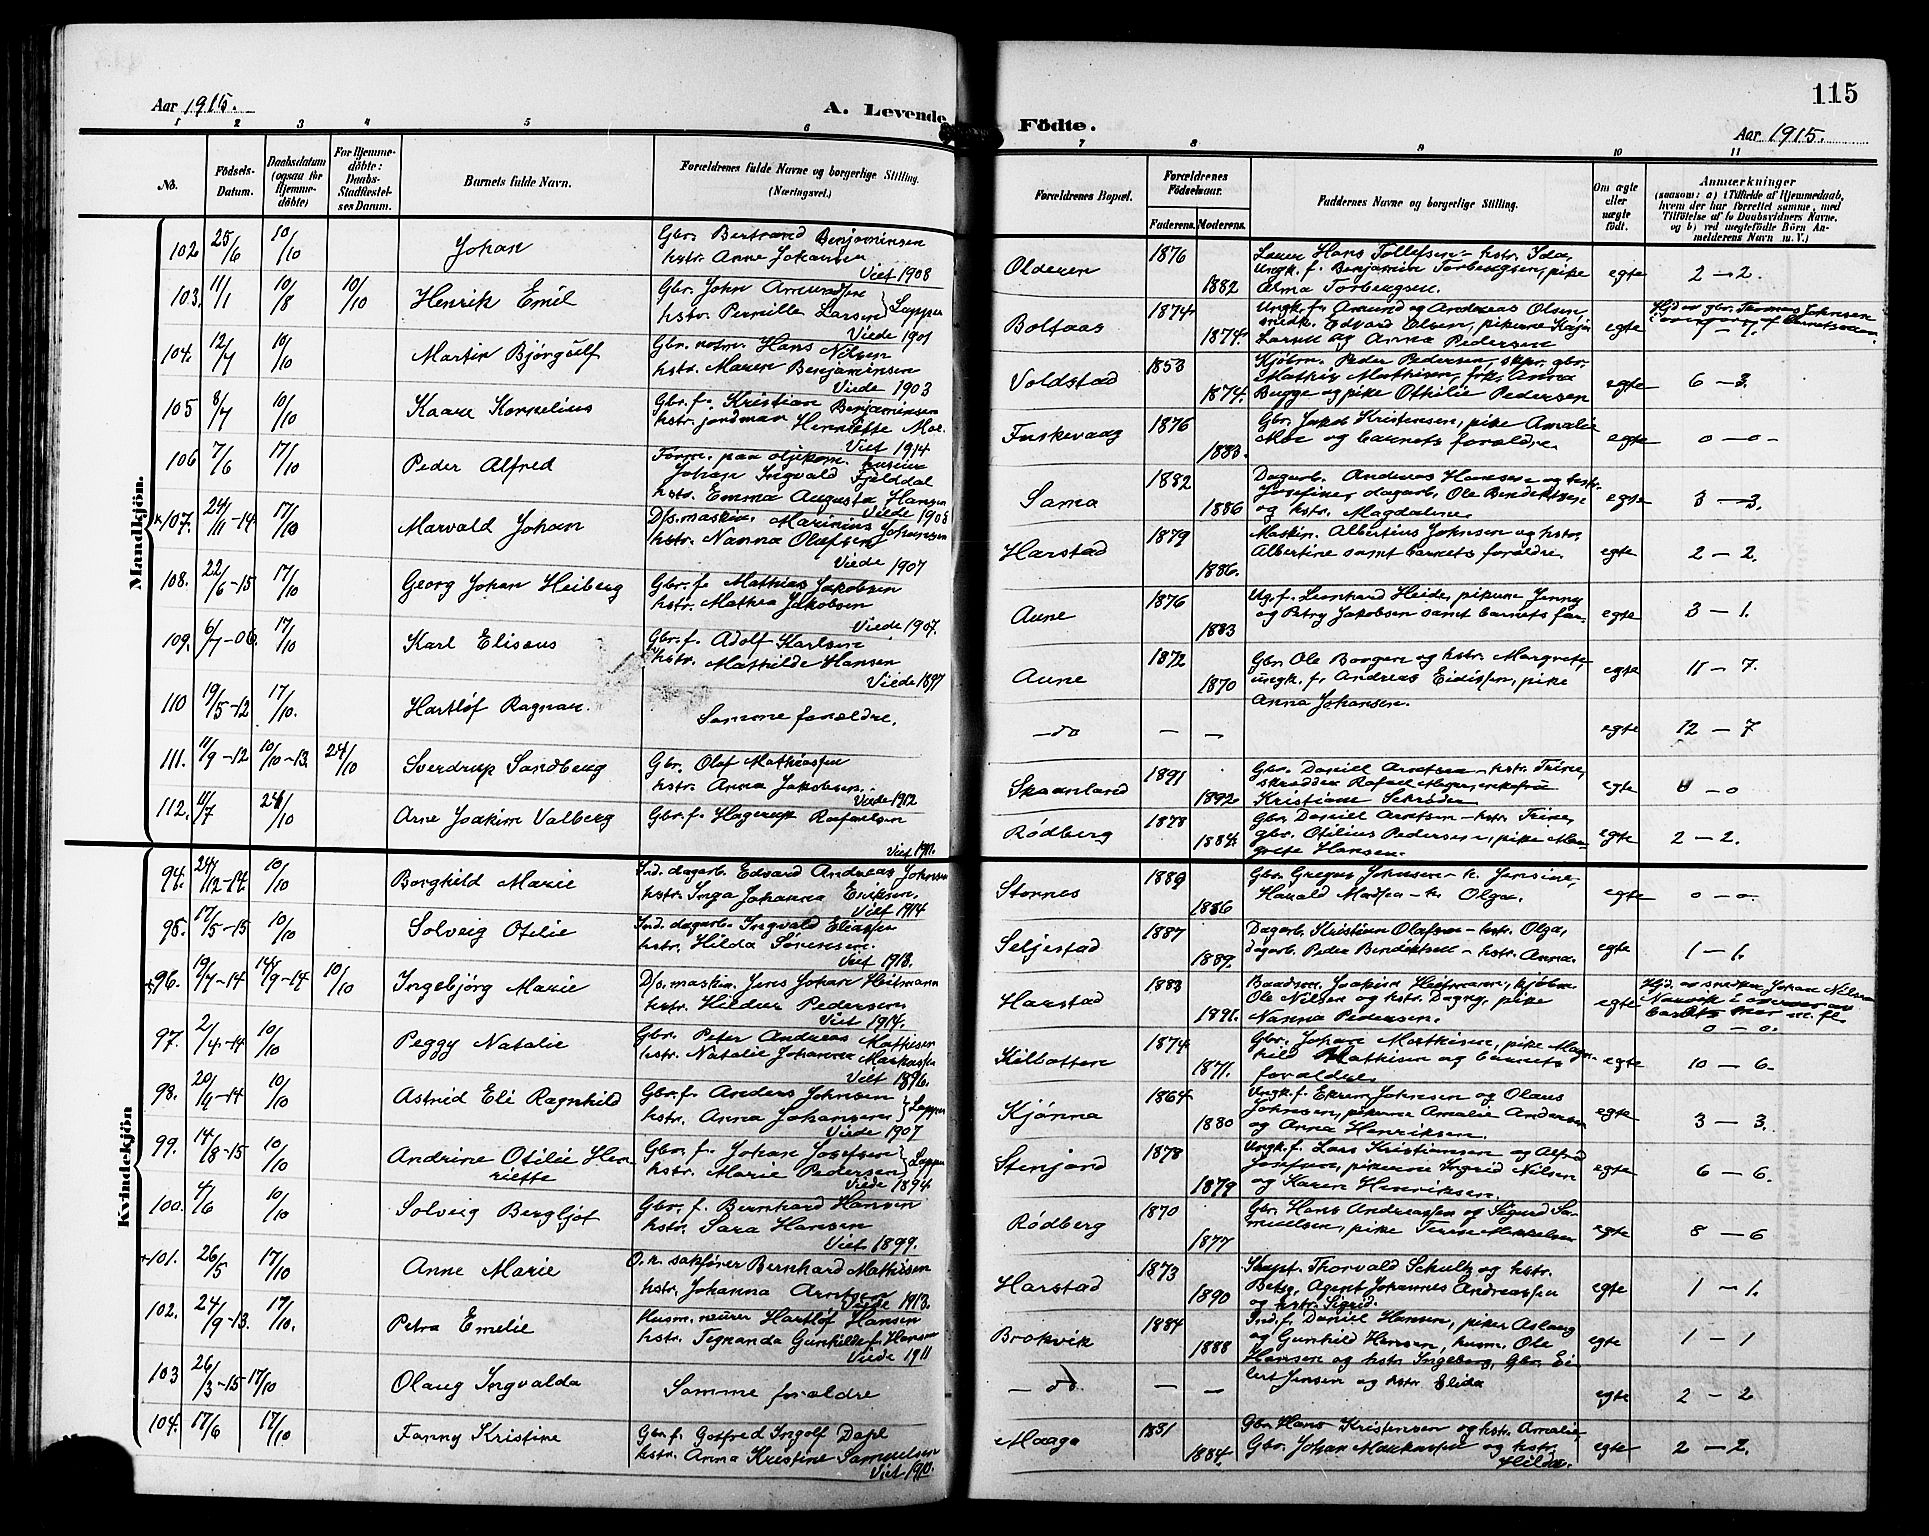 115
Aar 1915.
A. Levende
Födte.
Aar 1915.
1 2 3 4 5 6 7 8 9 10 11
No.
Födsels-Datum.
Daabsdatum (ogsaa for Hjemme-döbte)
For Hjemme-döbte: Daabs-Stadfæstelses Datum.
Barnets fulde Navn.
Forældrenes fulde Navne og borgerlige Stilling.
(Næringsvei.)
Forældrenes Bopæl.
Forældrenes Födselsaar.
Faderens. Moderens.
Faddernes Navne og borgerlige Stilling.
Om ægte eller uægte födt.
Anmærkninger
(saasom: a) i Tilfælde af Hjemmedaab, hvem der har forrettet samme, med Tilföielse af to Daabsvidners Navne, og b) ved uegtefödte Börn Anmelderens Navn m. V.)
Mandkjön.
102 25/6 10/10 Johan Gbr. Bertrand Benjaminsen
hstr. Anne Johansen
Viet 1908
Olderen 1876 1882 Hans Tollefsen - hstr. Ida,
Ungk. f. Benjamin Torbergsen, pike
Alma Torbergsen.
egte 2 - 2.
103. 11/1 10/8 10/10 Henrik Emil Gbr. John Amundsen
hstr. Pernille Larsen } Lapper
Viede 1901
Boltaas 1874 1874. Ungk. f. Amund og Andreas Olsen,
snedk. Edvard Olsen, pikerne Kaja
Larsen og Anna Pedersen
egte
104. 12/7 10/10 Martin Bjørgulf Gbr. notm. Hans Nilsen
hstr. Maren Benjaminsen
Viede 1903
Voldstad 1853 1874. Kjøbm. Peder Pedersen, skpr. gbr.
Mathis Mathisen, frk. Anna
Bugge og pike Othilie Pedersen
egte 6 - 3.
105 8/7 10/10 Kaare Kornelius Gbr. f. Kristian Benjaminsen
hstr. jordmor Henriette Moe.
Viet 1914
Fuskevaag 1876 1883. Gbr. Jakob Kristensen, pike Amalie
Moe og barnets forældre.
egte 0 - 0 -
106 7/6 17/10 Peder Alfred Form. paa oljekom.
Johan Ingvald Fjelddal
hstr. Emma Augusta Hansen
Viede 1908
Sama 1882 1886 Dagarb. Andreas Hansen og hstr.
Josefine, dagarb. Ole Bendiktsen
og hstr. Magdalene.
egte 3 - 3.
107. 24/11 - 14 17/10 Marvald Johan D/s. maskin. Marinius Johansen
hstr. Nanna Olafsen
Viede 1907
Harstad 1879 1886. Maskin. Albertius Johnsen og hstr.
Albertine samt barnets forældre.
egte 2 - 2.
108. 22/6 - 15 17/10 Georg Johan Heiberg Gbr. f. Mathias Jakobsen
hstr. Mathea Jakobsen
Viede 1907.
Aune 1876 1883 Ug. f. Leonhard Heide, pikerne Jenny
og Petry Jakobsen samt barnets far.
egte 3 - 1.
109. 6/7 - 06. 17/10 Karl Eliseus Gbr. f. Adolf Karlsen
hstr. Mathilde Hansen
Viede 1897
Aune 1872 1870 Gbr. Ole Borgen og hstr. Margrete,
ungk. f. Andreas Eidissen, pike
Anna Johansen.
egte 11 - 7.
110 19/5 - 12 17/10. Hartløf Ragnar. Samme forældre.
- do - - egte 12 - 7
111. 11/9 - 12 10/10 - 13. 24/10 Sverdrup Sandberg Gbr. Olaf Mathiassen
hstr. Anna Jakobsen.
Viede 1912
Skaanland 1891 1892 Gbr. Daniel Arntsen - hstr. Trine,
skrædder Rafael Hagen, enkefru
Kristiane Schrøder
egte 0 - 0
112. 11/7 24/10 Arne Joakim Valberg Gbr. f. Hagerup Rafaelsen
Viet 1911.
Rødberg 1878 1884. Gbr. Daniel Arntsen - hstr. Trine,
gbr. Otilius Pedersen, pike Margrete Hansen.
egte 2 - 2.
Kvindekjön
94. 24/12 - 14. 10/10 Borghild Marie Ind. dagarb. Edvard Andreas Johnsen
hstr. Inga Johanna Eriksen,
Viet 1914
Stornes 1889 1886 Gbr. Gregus Johnsen - h. Jensine,
Harald Madsen - h. Olga.
egte 0 - 0.
95. 17/5 - 15 10/10 Solveig Otilie Ind. dagarb. Ingvald Eliassen
hstr. Hilda Sørensen.
Viet 1913.
Seljestad 1887 1889. Dagarb. Kristian Olafsen - hstr. Olga,
dagarb. Peder Bendiktsen - hstr. Anna.
egte 1 - 1.
96. 19/7 - 14 14/9 - 14 10/10 Ingebjørg Marie D/s. maskin. Jens Johan Heitmann
hstr. Hildur Pedersen
Viet 1914.
Harstad 1883 1891. Baadsm. Joakim Heitmann, kjøbm.
Ole Nilsen og hstr. Dagny, pike
Nanna Pedersen.
egte Hjd. av snedker Johan Nilsen
Narvik i
barnets mor m. fl.
0 - 0.
97. 2/4 - 14 10/10 Peggy Natalie Gbr. Peter Andreas Mathisen
hstr. Natalie Johanna Markussen
Viet 1896.
Kilbotten 1874 1871. Gbr. Johan Mathisen, pike Magnhild Mathisen og barnets
forældre.
egte 10 - 6.
98. 20/4 - 14 10/10 Astrid Eli Ragnhild Gbr. f. Anders Johnsen
hstr. Anna Johansen } Lapper
Viede 1907
Kjønna 1864 1880 Ungk. f. Ekrem Johnsen og Olaus
Johnsen, pikerne Amalie Andersen
og Anna Henriksen.
egte 3 - 3.
99. 14/8 - 15 10/10 Andrine Otilie Henriette Gbr. f. Johan Josefsen
hstr. Marie Pedersen } Lapper
Viede 1894
Stenjord 1873 1879 Ungk. f. Lars Kristiansen og Alfred
Josefsen, pikerne Ingrid Nilsen
og Karen Henriksen.
egte 6 - 6.
100. 4/6 10/10 Solveig Bergljot Gbr. f. Bernhard Hansen
hstr. Sara Hansen
Viet 1899.
Rødberg 1870 1877 Gbr. Hans Andreassen og Sigurd Samuelsen, pike Terese Mikkelsen
egte 8 - 6
101. 26/5 17/10 Anne Marie O. r. sakfører Bernhard Mathisen
hstr. Johanna Arntsen
Viede 1913.
Harstad 1873 1890 Skipf. Thorvald Schultz og hstr.
Betsy, Agent Johannes Andreassen
og hstr. Sigrid.
egte 1 - 1.
102. 24/9 - 13. 17/10. Petra Emelie Husm. murer Hartløf Hansen
hstr. Tynanda Gunhillef. Hansen
Viede 1911
Brokvik 1884 1888 Ind. f. Daniel Hansen, piker Aslaug
og Gunhild Hansen, husm. Ole
Hansen og hstr. Ingeborg, Gbr. Eilert Jensen og hstr. Elida
egte 1 - 1
103 26/3 - 15 17/10 Olaug Ingvalda Samme forældre
- do - - egte 2 - 2
104. 17/6 17/10 Fanny Kristine Gbr. f. Gotfred Ingolf Dahl
hstr. Anna Kristine Samuelsen
Viet 1910.
Maaga 1881 1884. Gbr. Hans Kristensen og hstr. Amalie,
Gbr. Johan Markussen og hstr.
Hilda.
egte 2 - 2.